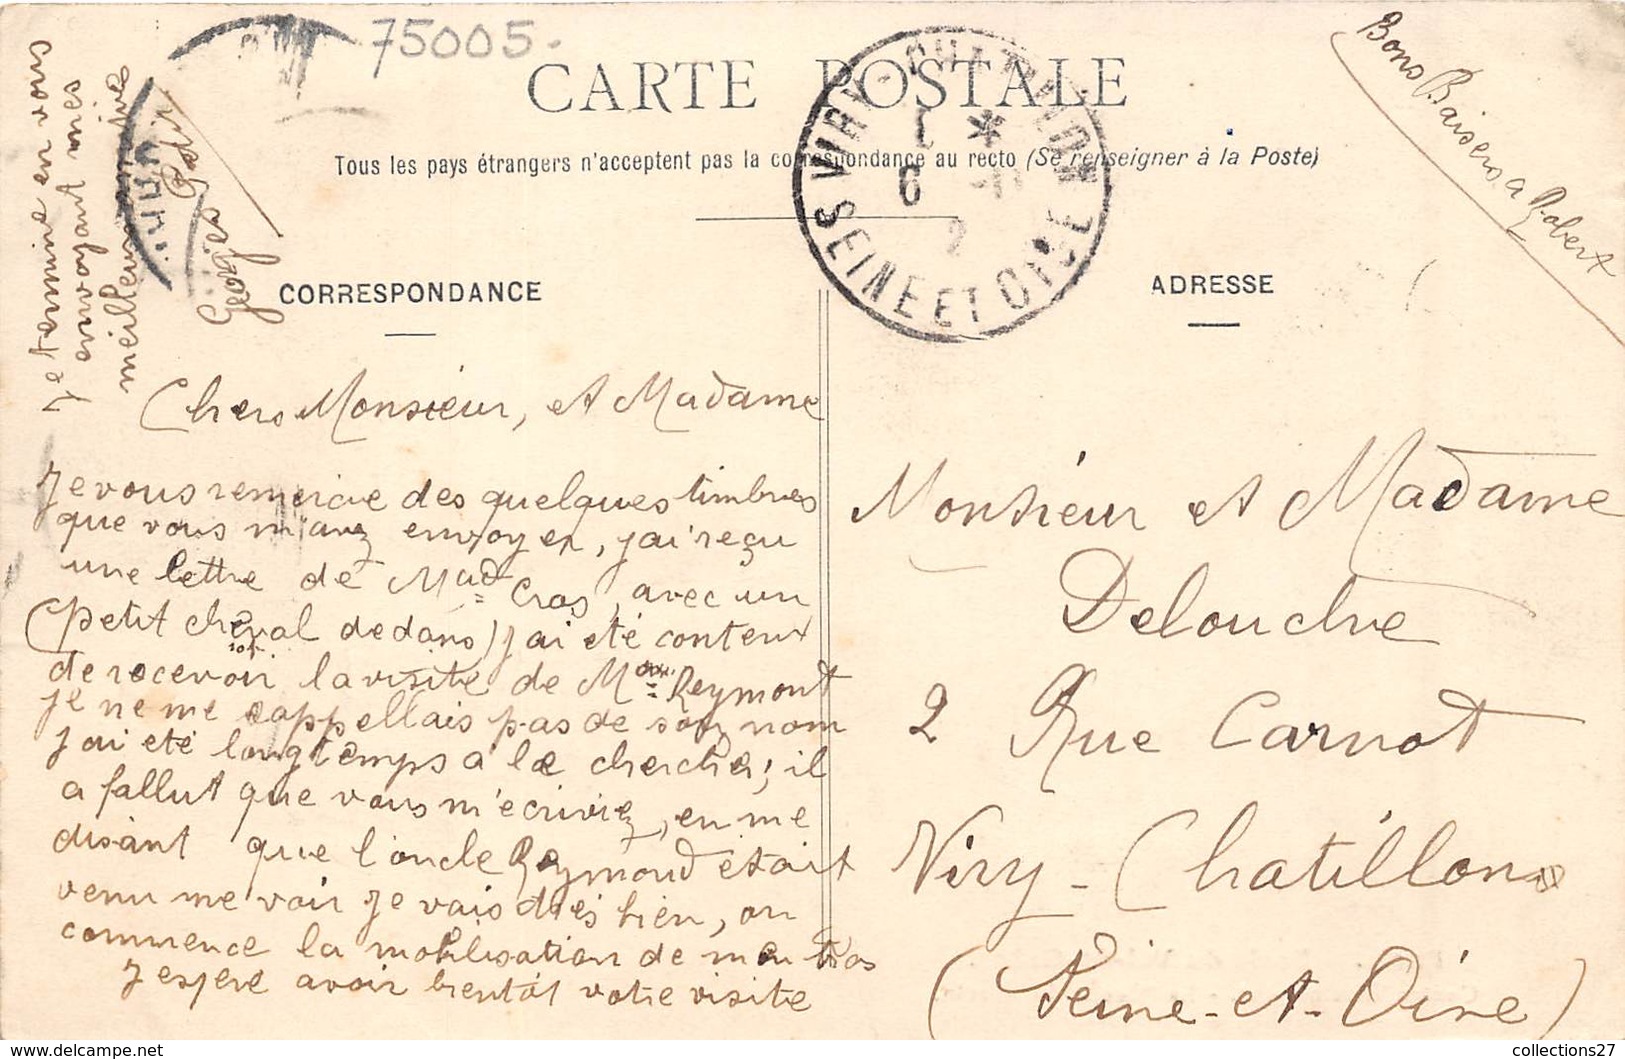 75005-
CARTE POSTALE
Tous les pays étrangers n'acceptent pas la correspondance au recto (Se renseigner à la Poste)
VIRY-CHATILLON
6
SEINE ET OISE
CORRESPONDANCE
ADRESSE
Chers Monsieur, et Madame
Je vous remercie des quelques timbres
que vous m'avez envoyer, j'ai reçu
une lettre de Mad Cros, avec un
(petit cheval dedans) j'ai été conteux
de recevoir la visite de M Reymont
je ne me rappellais pas de son nom
j'ai été longtemps à le chercher, il
a fallut que vous m'écriviez, en me
disant que l'oncle Reymond était
venu me voir je vais très bien, on
commence la mobilisation de mon bras
J'espère avoir bientôt votre visite
Je termine en vous
envoyant mes
meilleurs
Georges
Bons Baisers a Robert
Monsieur et Madame
Delouche
2 Rue Carnot
Viry-Chatillon
(Seine-et-Oise)
collections27